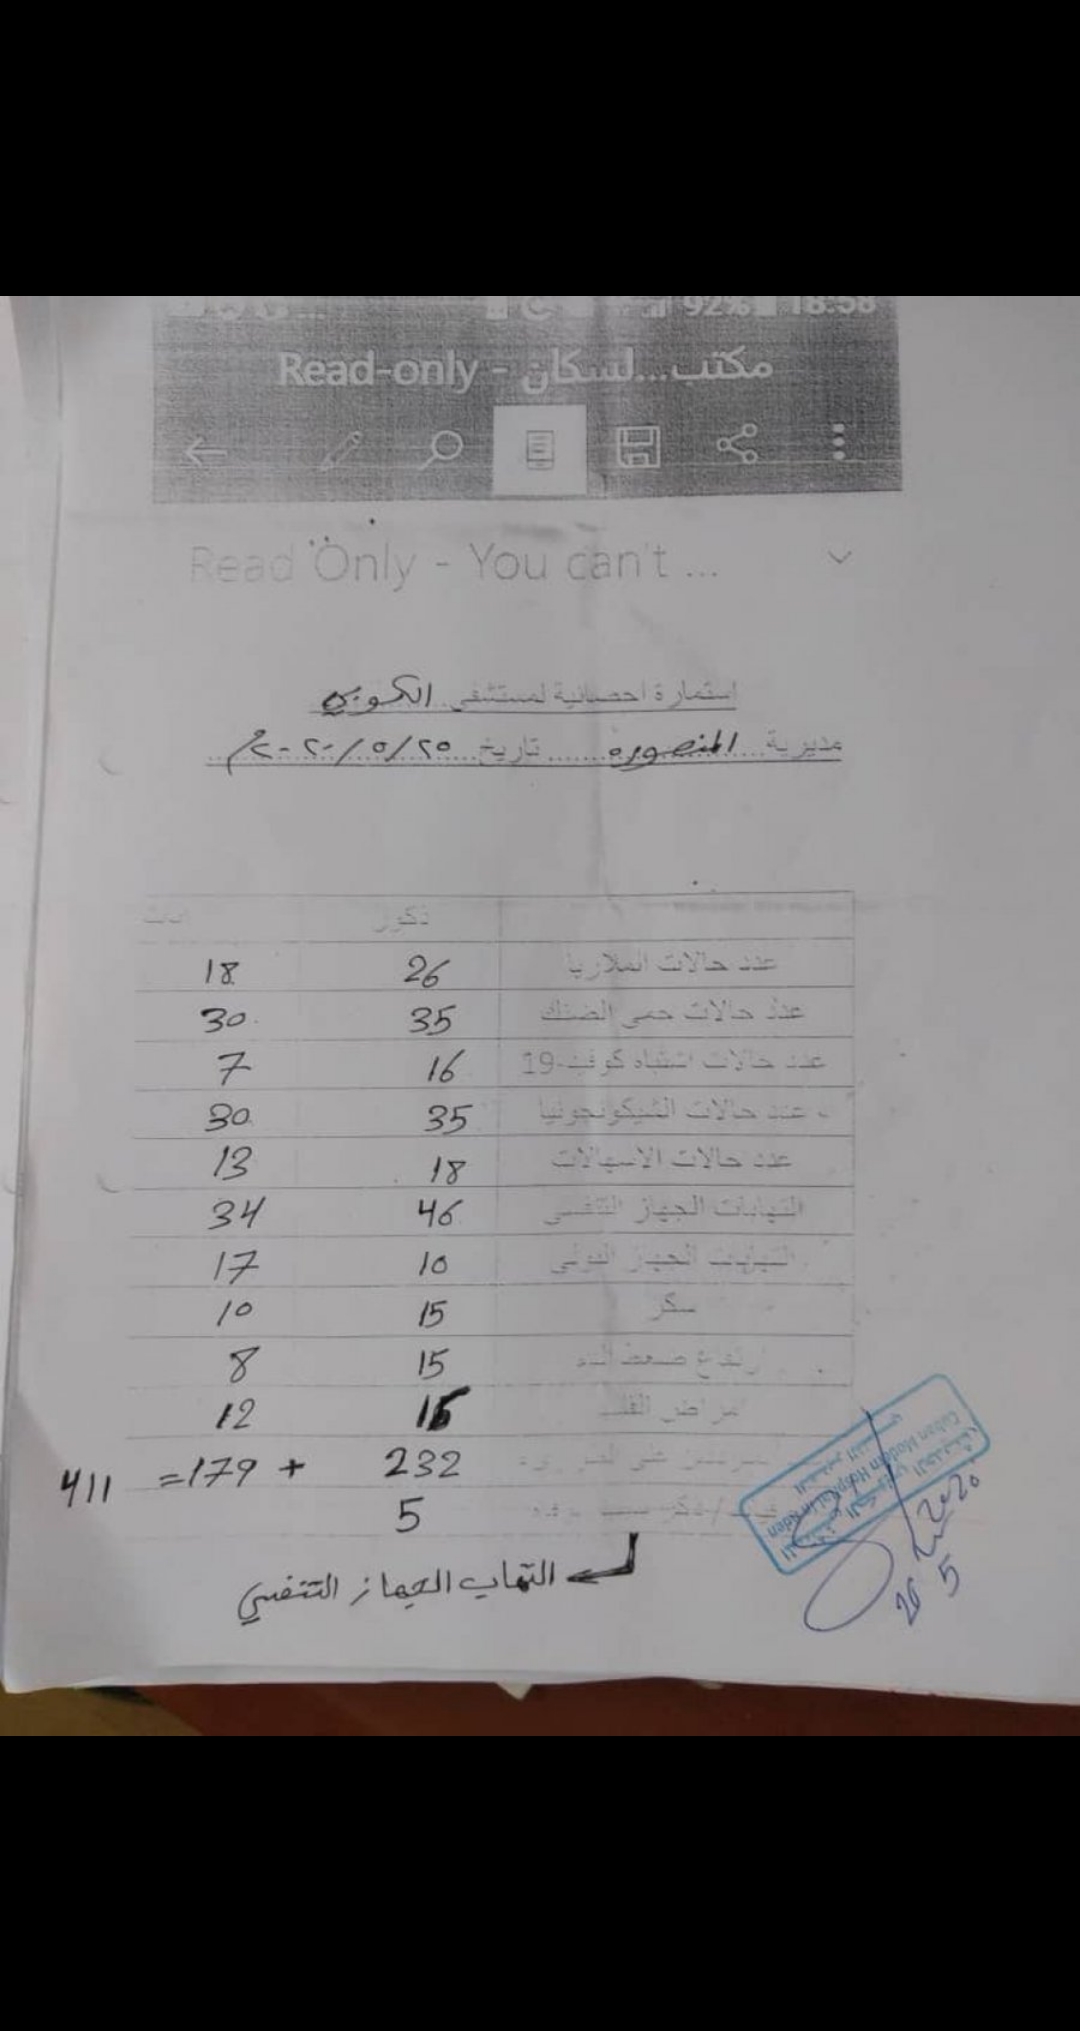 92% 18:58
مكتب...لسكان - Read-only
Read Only - You can't ...
استمارة احصائية لمستشفى الكوبي
مديرية المنصوره تاريخ ٢٠٢٠/٥/٢٥م
ذكور اناث
عدد حالات الملاريا 26 18
عدد حالات حمى الضنك 35 30
عدد حالات اشتباه كوفيد-19 16 7
عدد حالات الشيكونجونيا 35 30
عدد حالات الاسهالات 18 13
التهابات الجهاز التنفسي 46 34
التهابات الجهاز البولي 10 17
سكر 15 10
ارتفاع ضغط الدم 15 8
امراض القلب 16 12
232 + 179 = 411
5
التهاب الجهاز التنفسي
Cuban Modern Hospital in Aden
26 5 2020